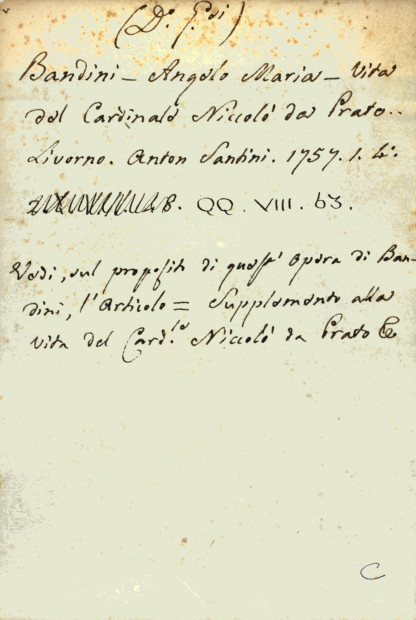 (D.º G.si)
Bandini - Angelo Maria - Vita
del Cardinale Niccolò da Prato..
Livorno. Anton Santini. 1757. 1. 4º.
B. QQ. VIII. 63.
Vedi, sul proposito di quest' opera di Ban-
dini, l'Articolo = Supplemento alla
vita del Card.le Niccolò da Prato &
C